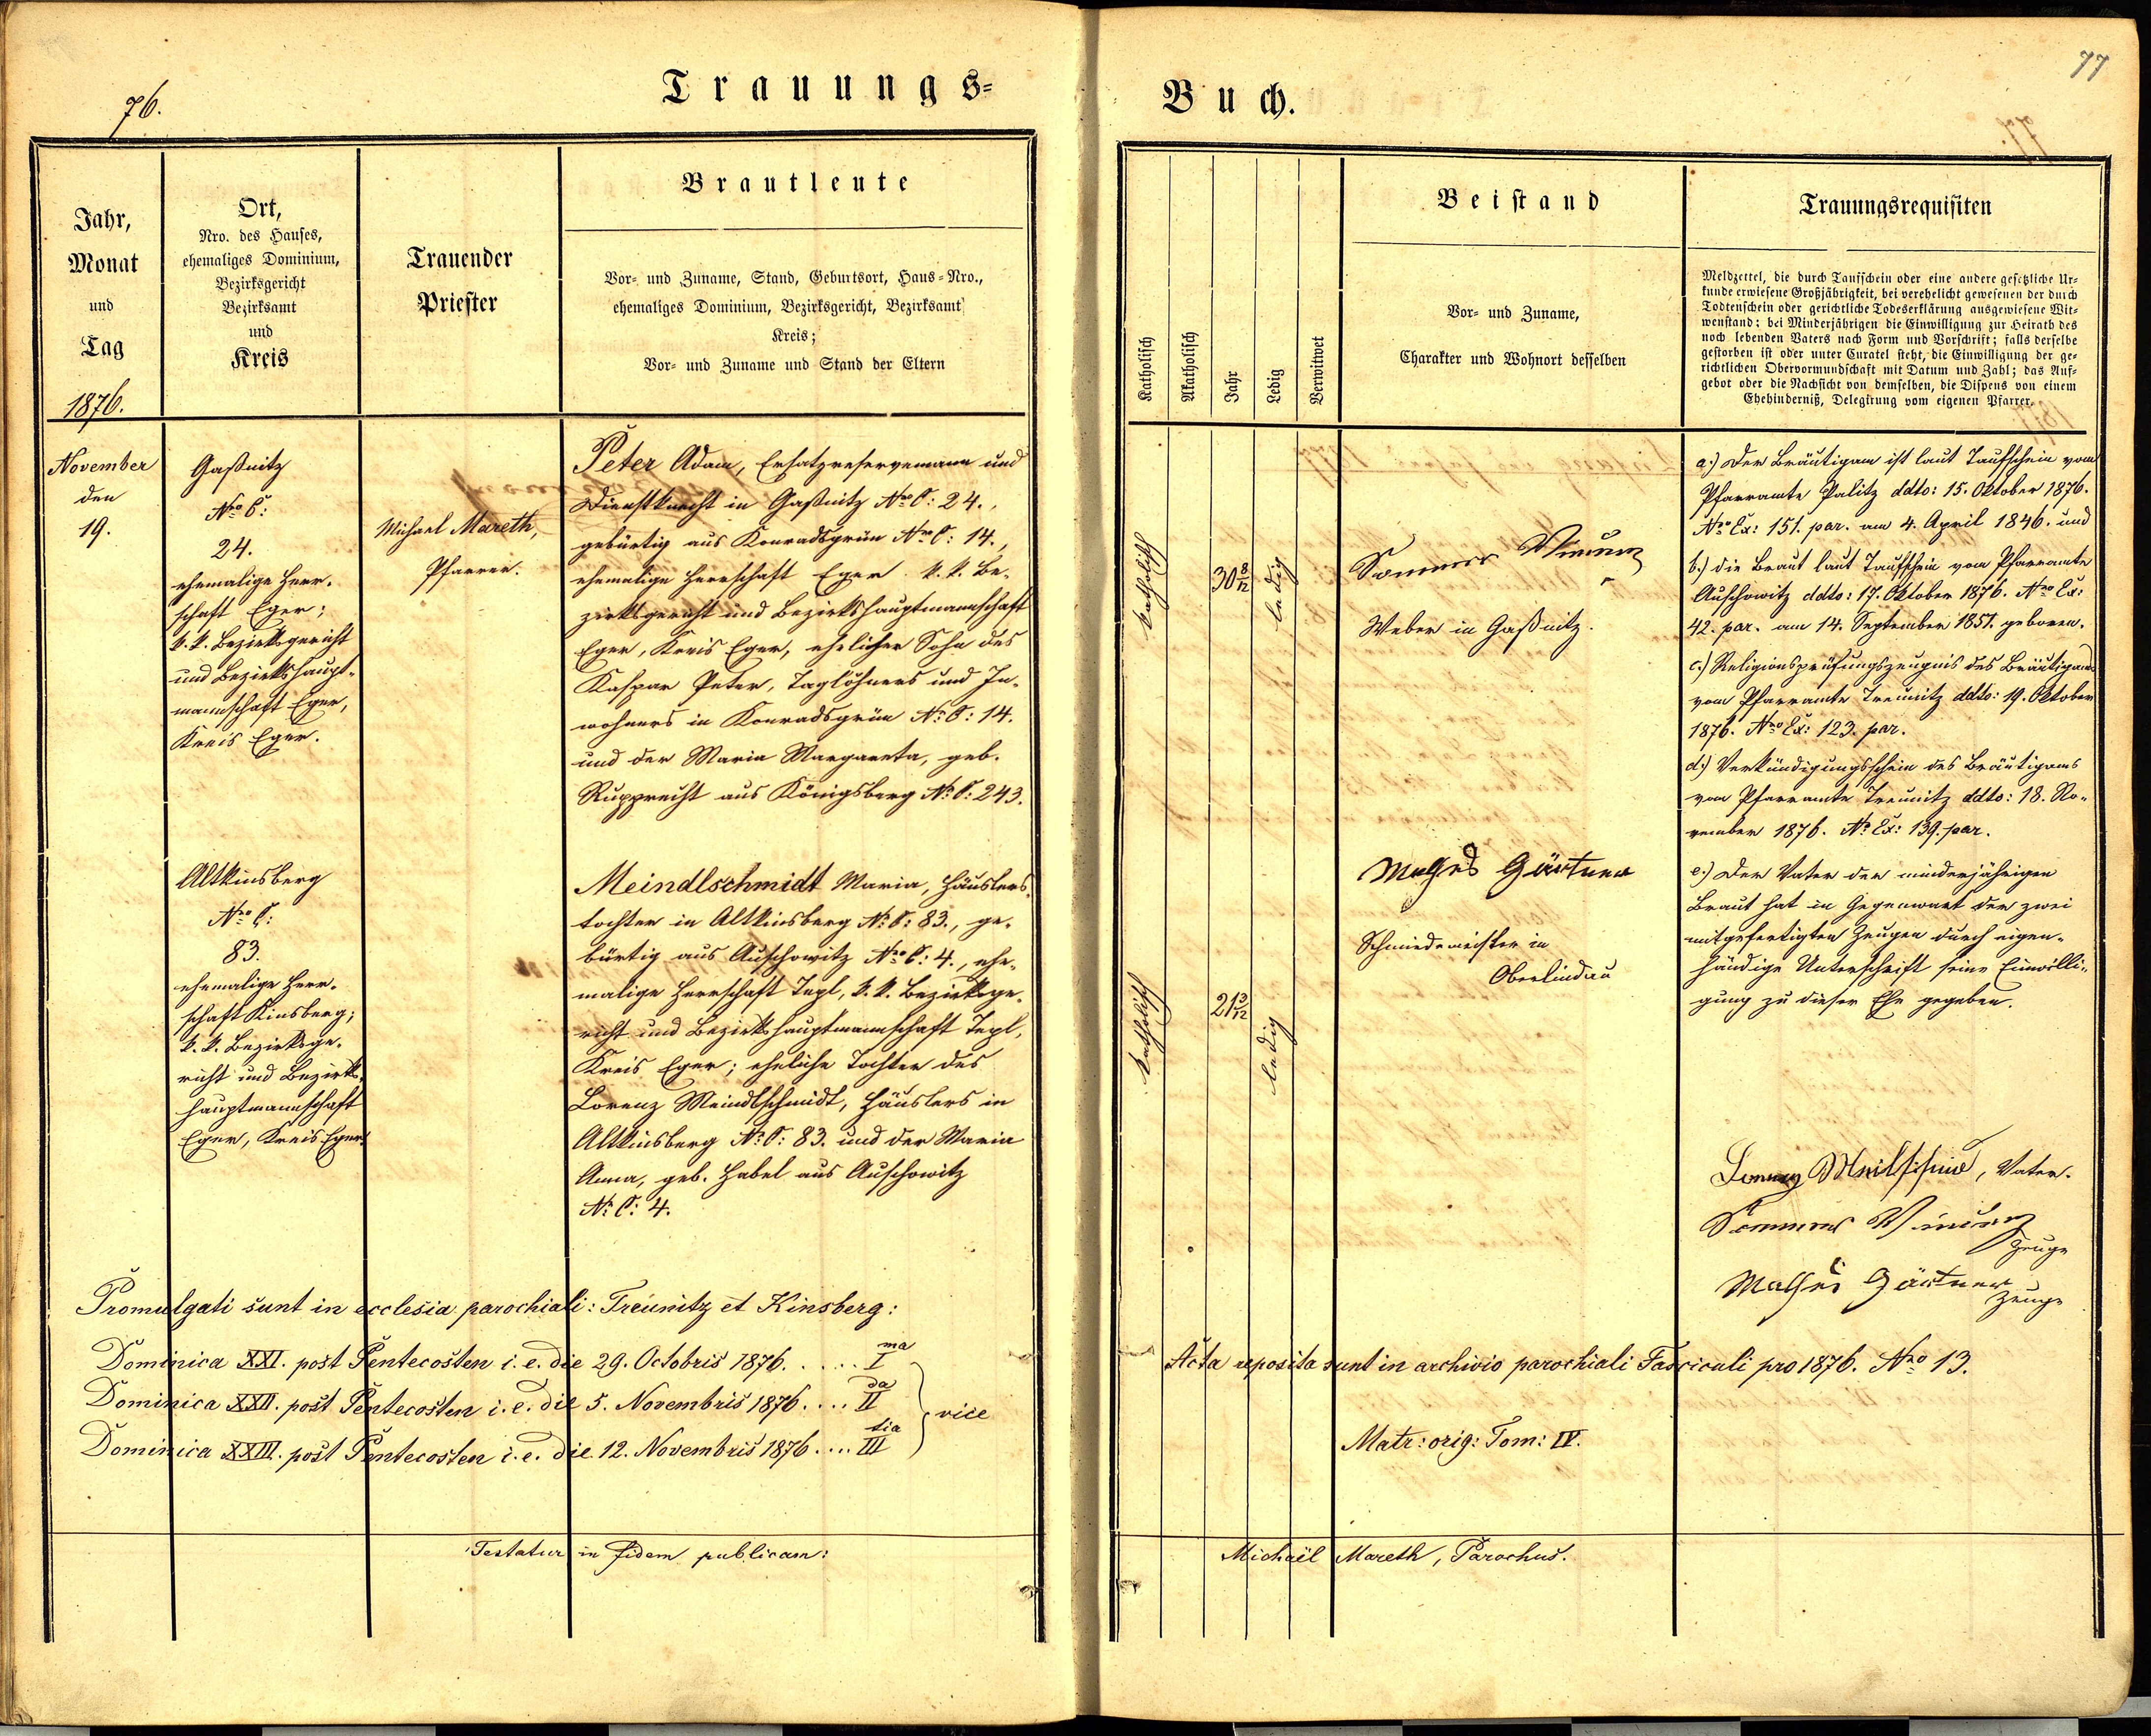 76.
Trauungs-
Jahr,
Monat
und
Tag
1876.
Ort,
Nro. des Hauses,
ehemaliges Dominium,
Bezirksgericht
Bezirksamt
und
Kreis
Trauender
Priester
Brautleute
Vor- und Zuname, Stand, Geburtsort, Haus-Nro.,
ehemaliges Dominium, Bezirksgericht, Bezirksamt
Kreis;
Vor- und Zuname und Stand der Eltern
November
den
19.
Gaßnitz
Nro C:
24.
ehemalige Herr-
schaft Eger;
k. k. Bezirksgericht
und Bezirkshaupt-
mannschaft Eger,
Kreis Eger.
Michael Mareth,
Pfarrer.
Peter Adam, Ersatzreservemann und
Dienstknecht in Gaßnitz Nro C: 24.,
gebürtig aus Konradsgrün Nro C: 14.,
ehemalige Herrschaft Eger k. k. Be-
zirksgericht und Bezirkshauptmannschaft
Eger, Kreis Eger, ehelicher Sohn des
Kaspar Peter, Taglöhners und In-
wohners in Konradsgrün No C: 14.
und der Maria Margareta, geb.
Rupprecht aus Königsberg No C: 243.
Altkinsberg
Nro C:
83.
ehemalige Herr-
schaft Kinsberg;
k. k. Bezirksge-
richt und Bezirks-
hauptmannschaft
Eger, Kreis Eger.
Meindlschmidt Maria, Häuslers-
tochter in Altkinsberg No C: 83., ge-
bürtig aus Auschowitz Nro C: 4., ehe-
malige Herrschaft Tepl, k. k. Bezirksge-
richt und Bezirkshauptmannschaft Tepl,
Kreis Eger; eheliche Tochter des
Lorenz Meindlschmidt, Häuslers in
Altkinsberg No C: 83. und der Maria
Anna, geb. Habel aus Auschowitz
No C: 4.
Promulgati sunt in ecclesia parochiali: Treunitz et Kinsberg:
Dominica XXI. post Pentecosten i. e. die 29. Octobris 1876. .... I ma
Dominica XXII. post Pentecosten i. e. die 5. Novembris 1876. ... II da
vice
Dominica XXIII. post Pentecosten i. e. die 12. Novembris 1876. ... III tia
Testatur in fidem publicam:
77
Buch.
Katholisch
Akatholisch
Jahr
Ledig
Verwitwet
Beistand
Vor- und Zuname,
Charakter und Wohnort desselben
Trauungsrequisiten
Meldzettel, die durch Taufschein oder eine andere gesetzliche Ur-
kunde erwiesene Großjährigkeit, bei verehelicht gewesenen der durch
Todtenschein oder gerichtliche Todeserklärung ausgewiesene Wit-
wenstand; bei Minderjährigen die Einwilligung zur Heirath des
noch lebenden Vaters nach Form und Vorschrift; falls derselbe
gestorben ist oder unter Curatel steht, die Einwilligung der ge-
richtlichen Obervormundschaft mit Datum und Zahl; das Auf-
gebot oder die Nachsicht von demselben, die Dispens von einem
Ehehinderniß, Delegirung vom eigenen Pfarrer.
katholisch
30 8/12
ledig
Sommer Vinzenz
Weber in Gaßnitz.
a.) Der Bräutigam ist laut Taufschein vom
Pfarramte Palitz ddto: 15. Oktober 1876.
Nro Ex: 151. par. am 4. April 1846. und
b.) die Braut laut Taufschein vom Pfarramte
Auschowitz ddto: 17. Oktober 1876. Nro Ex:
42. par. am 14. September 1851. geboren.
c.) Religionsprüfungszeugnis des Bräutigams
vom Pfarramte Treunitz ddto: 19. Oktober
1876. Nro Ex: 123. par.
d.) Verkündigungsschein des Bräutigams
vom Pfarramte Treunitz ddto: 18. No-
vember 1876. No Ex: 139. par.
katholisch
21 3/12
ledig
Mathes Gärtner
Schmiedemeister in
Oberlindau
e.) Der Vater der minderjährigen
Braut hat in Gegenwart der zwei
mitgefertigten Zeugen durch eigen-
händige Unterschrift seine Einwilli-
gung zu dieser Ehe gegeben.
Lorenz, Vater.
Sommer Vinzenz
Zeuge
Mathes Gärtner
Zeuge
Acta reposita sunt in archivio parochiali Fasciculi pro 1876. Nro 13.
Matr: orig: Tom: IV.
Michaël Mareth, Parochus.